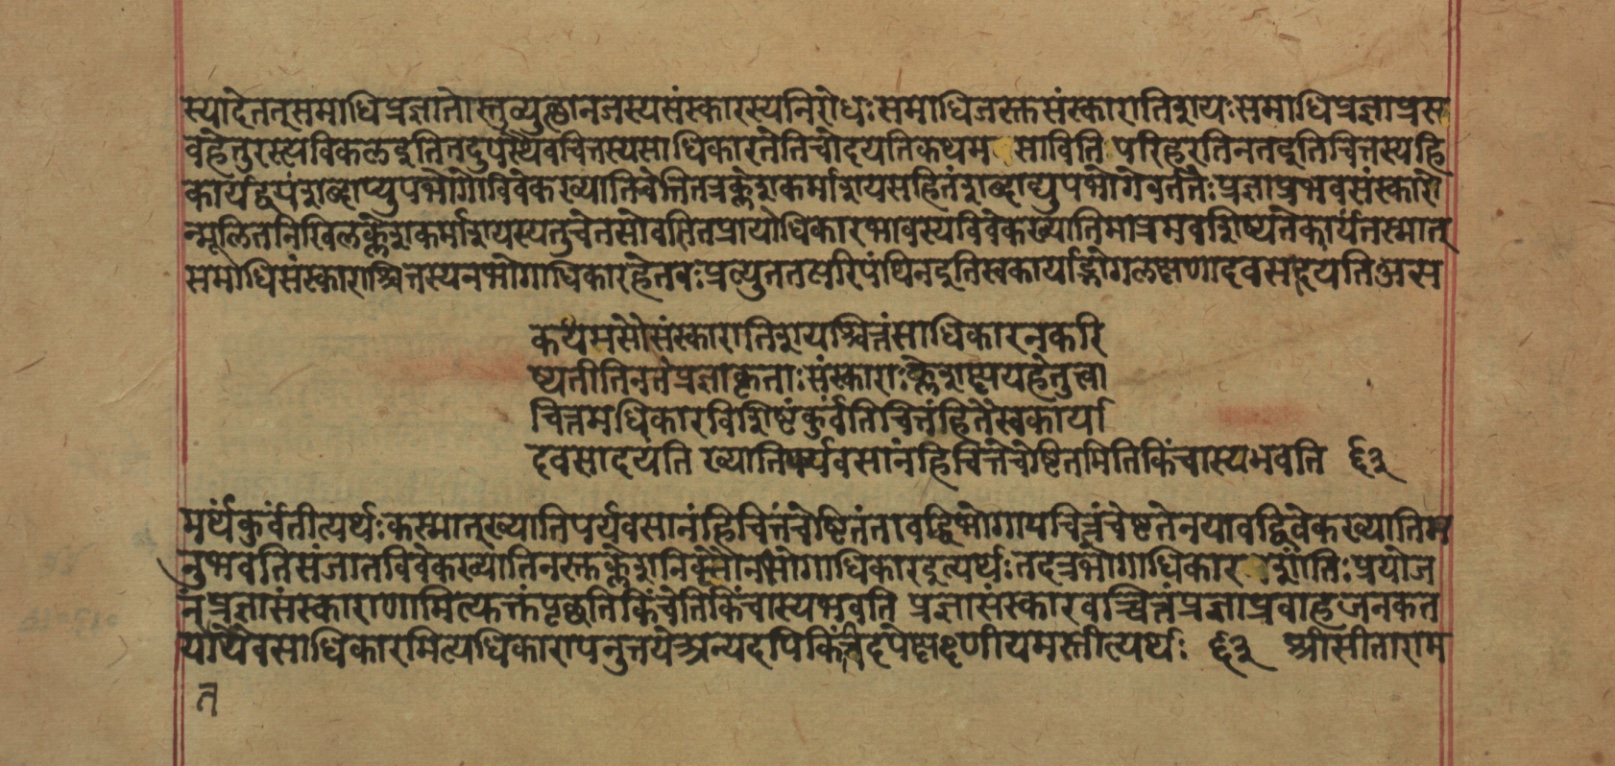 स्यादेतत्समाधिप्रज्ञातोस्तुव्युत्थानजस्यसंस्कारस्यनिरोधःसमाधिजस्तुसंस्कारातिशयःसमाधिप्रज्ञाप्रस
वहेतुरस्त्येविकलइतितदुपस्थैवचित्तस्यसाधिकारतेतिचोदयतिकथम साविति परिहरतिनतइतिचित्तस्यहि
कार्यद्वयंशब्दाप्युपभोगोविवेकख्यातिश्चेतितत्रक्लेशकर्माशयसहितंशब्दाद्युपभोगेवर्ततेःप्रज्ञाप्रभवसंस्कारो
न्मूलितनिखिलक्लेशकर्माशयस्यतुचेतसोवसितप्रायोधिकारभावस्यविवेकख्यातिमात्रमवशिष्यतेकार्यंतस्मात्
समाधिसंस्काराश्चित्तस्यनभोगाधिकारहेतवःप्रत्युततत्परिपंथिनइतिस्वकार्याद्भोगलक्षणादवसादयतिअस
कथमसौसंस्कारातिशयश्चित्तंसाधिकारनकरि
ष्यतीतिनतेप्रज्ञाकृताःसंस्काराःक्लेशक्षयहेतुत्वा
चित्तमधिकारविशिष्टंकुर्वंतिचित्तंहितेस्वकार्या
दवसादयंति ख्यातिपर्यवसानंहिचित्तचेष्टितमितिकिंचास्यभवति ६३
मर्थंकुर्वंतीत्यर्थःकस्मात्ख्यातिपर्यवसानंहिचित्तचेष्टितंतावद्धिभोगायचित्तंचेष्टतेनयावद्विवेकख्यातिम
नुभवतिसंजातविवेकख्यातिनस्तुक्लेशनिवृत्तौनभोगाधिकारइत्यर्थःतदत्रभोगाधिकार शांतिःप्रयोज
नंप्रज्ञासंस्काराणामित्युक्तंपृच्छतिकिंचेतिकिंचास्यभवति प्रज्ञासंस्कारवच्चित्तंप्रज्ञाप्रवाहजनकत
यातथैवसाधिकारमित्यधिकारापनुत्तयेअन्यदपिकिंचिदपेक्षणीयमस्तीत्यर्थः ६३ श्रीसीताराम
त